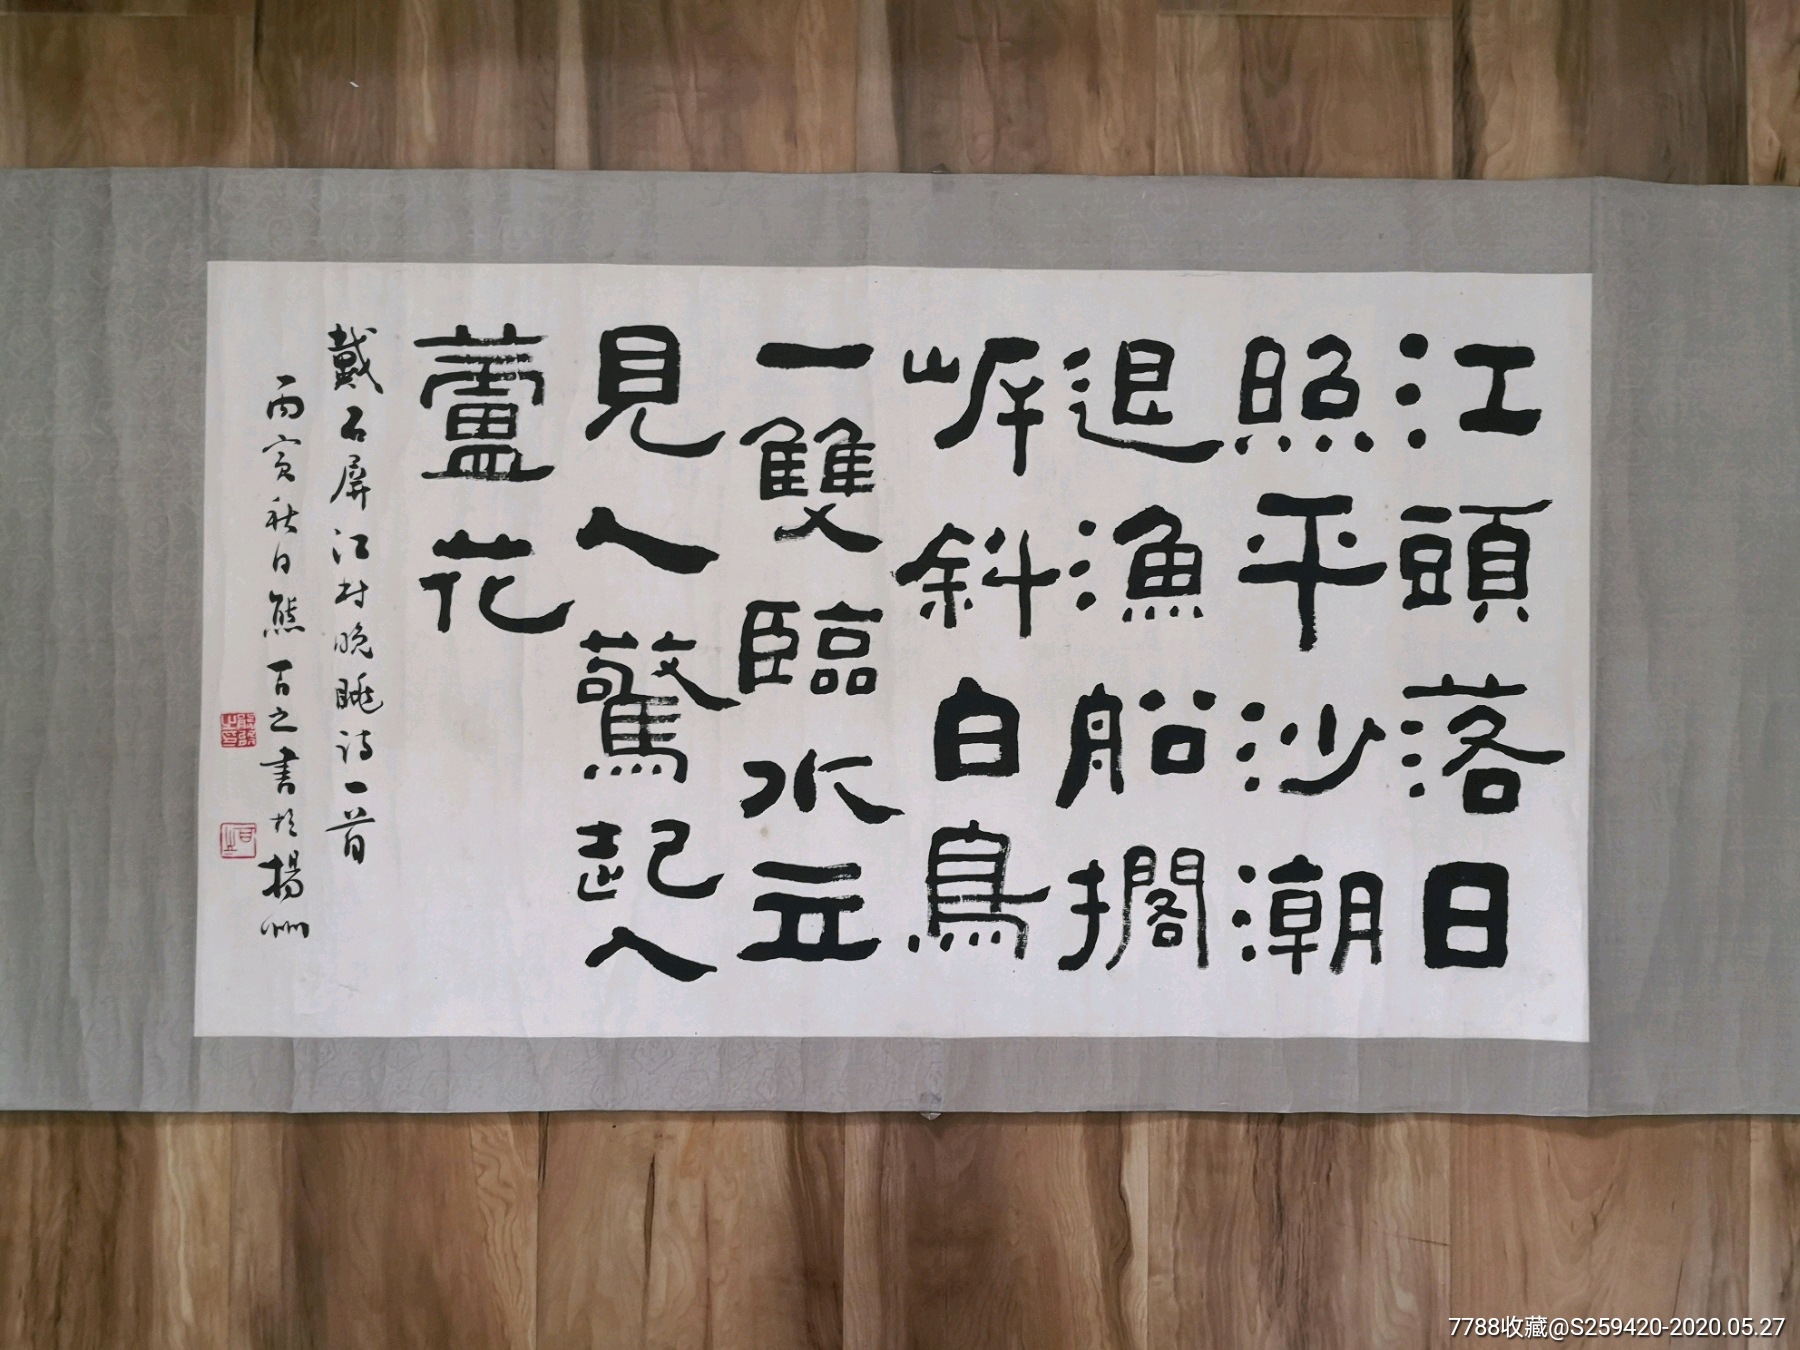 江頭落日
照平沙潮
退漁船擱
岸斜白鳥
一雙臨水立
見人驚起入
蘆花
戴石屏江村晚眺詩一首
丙寅秋日熊百之書於揚州
熊百之印
百之
7788收藏@S259420-2020.05.27